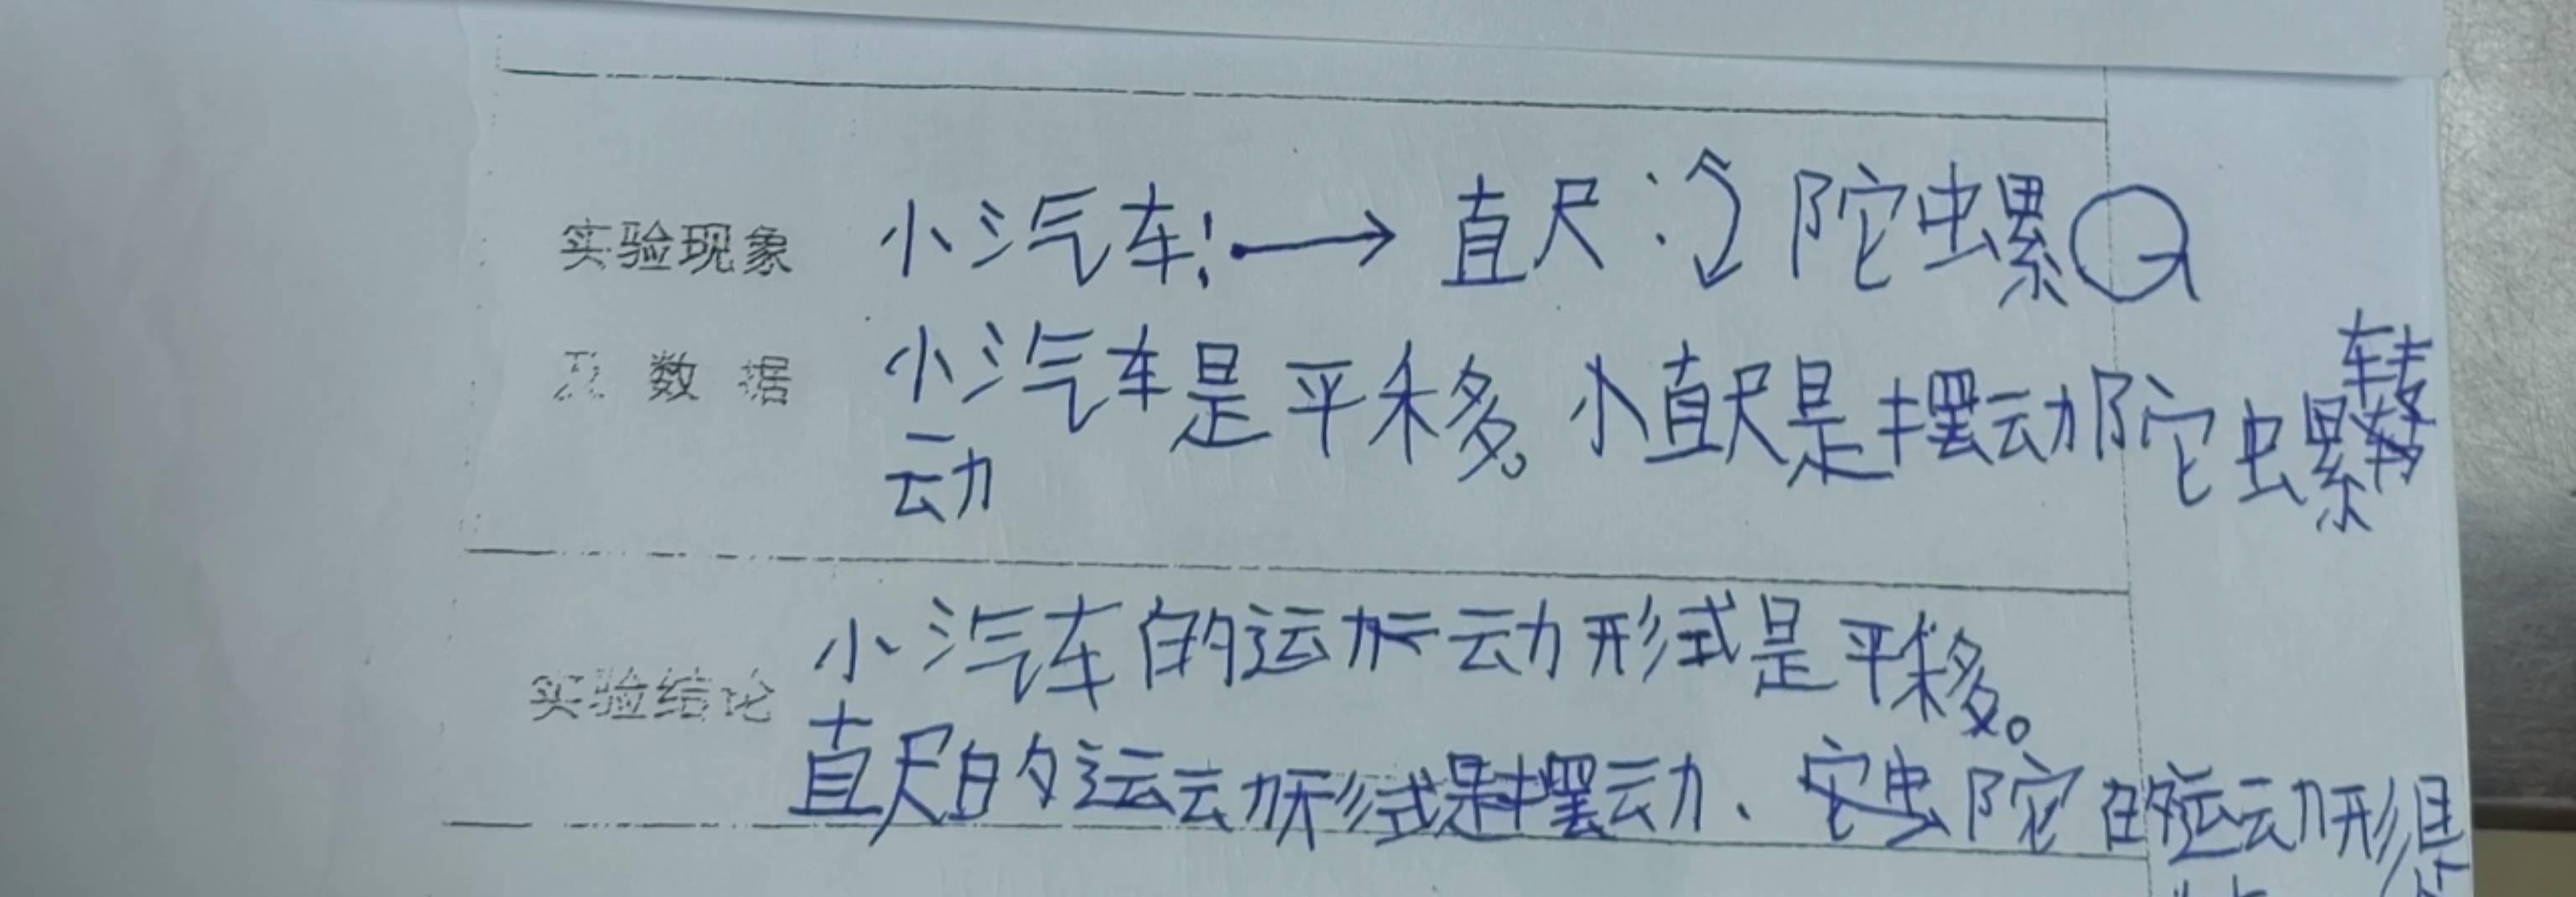 实验现象 小汽车: → 直尺: 陀螺
及数据 小汽车是平移。小直尺是摆动陀螺转
动
小汽车的运动形式是平移。
实验结论
直尺的运动形式是摆动、陀的运动形是